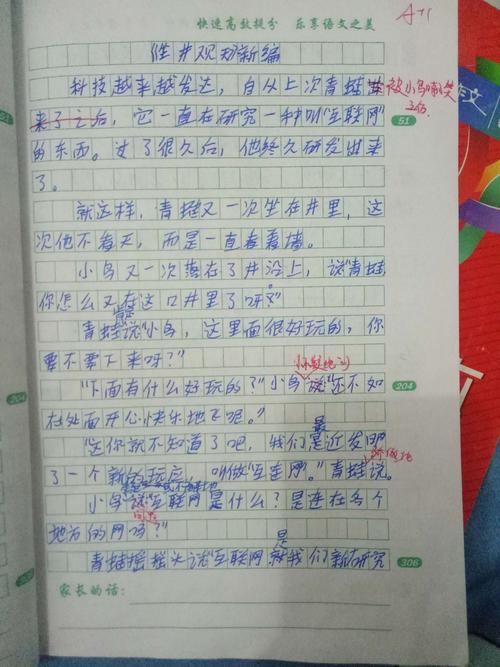 快速高效提分 乐享语文之美
A+1
《坐井观天》新编
科技越来越发达，自从上次青蛙被小鸟嘲笑
之后
来了之后，它一直在研究一种叫"互联网"
51
的东西。过了很久后，他终久研发出来
了。
就这样，青蛙又一次坐在井里，这
次他不看天，而是一直看着墙。
小鸟又一次落在了井沿上，说"青蛙，
你怎么又在这口井里了呀？"
青蛙说"小鸟，这里面很好玩的，你
要不要下来呀？"
"下面有什么好玩的？"小鸟说"还不如
204
在外面开心快乐地飞呢。"
最
"这你就不知道了吧，我们是近发明
了一个新的玩应，叫做"互连网。"青蛙说。
骄傲地
小鸟说"互联网是什么？是连在各个
地方的网吗？"
是
青蛙摇摇头说"互联网就我们新研究
306
家长的话：